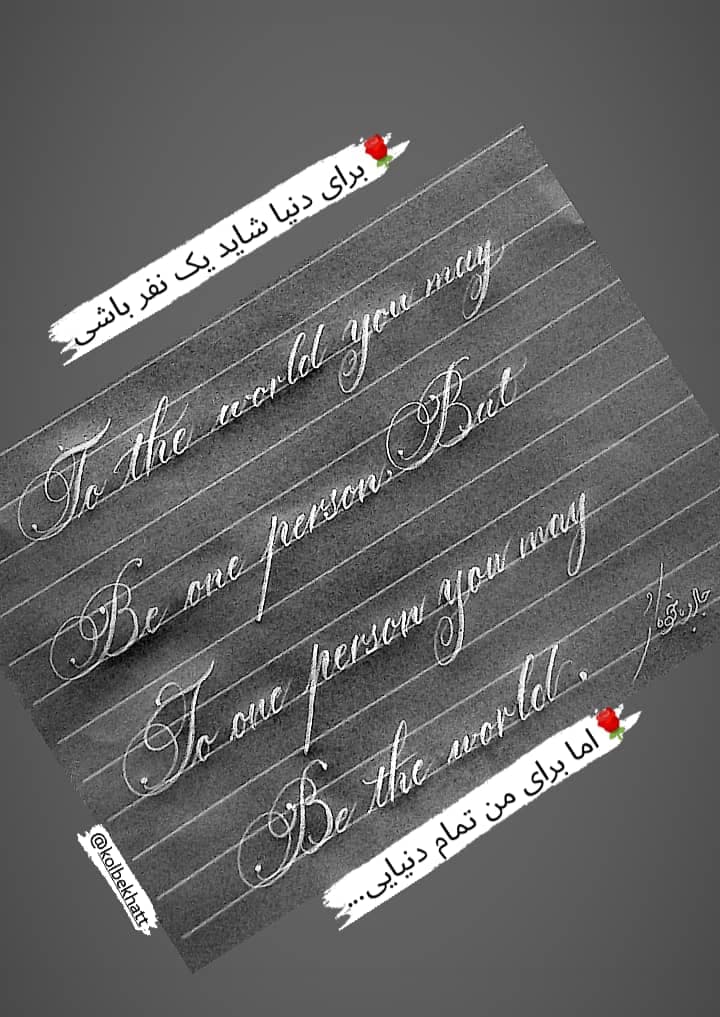 برای دنیا شاید یک نفر باشی🌹
To the world you may
Be one person, But
To one person you may
Be the world.
اما برای من تمام دنیایی...🌹
@kolbekhatt